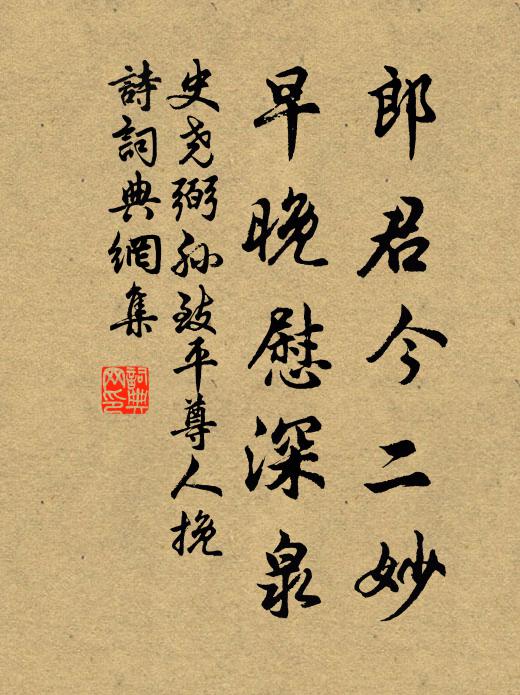 郎君今二妙
早晚慰深泉
史尧弼孙致平尊人挽
詩詞典網集
詞典網印